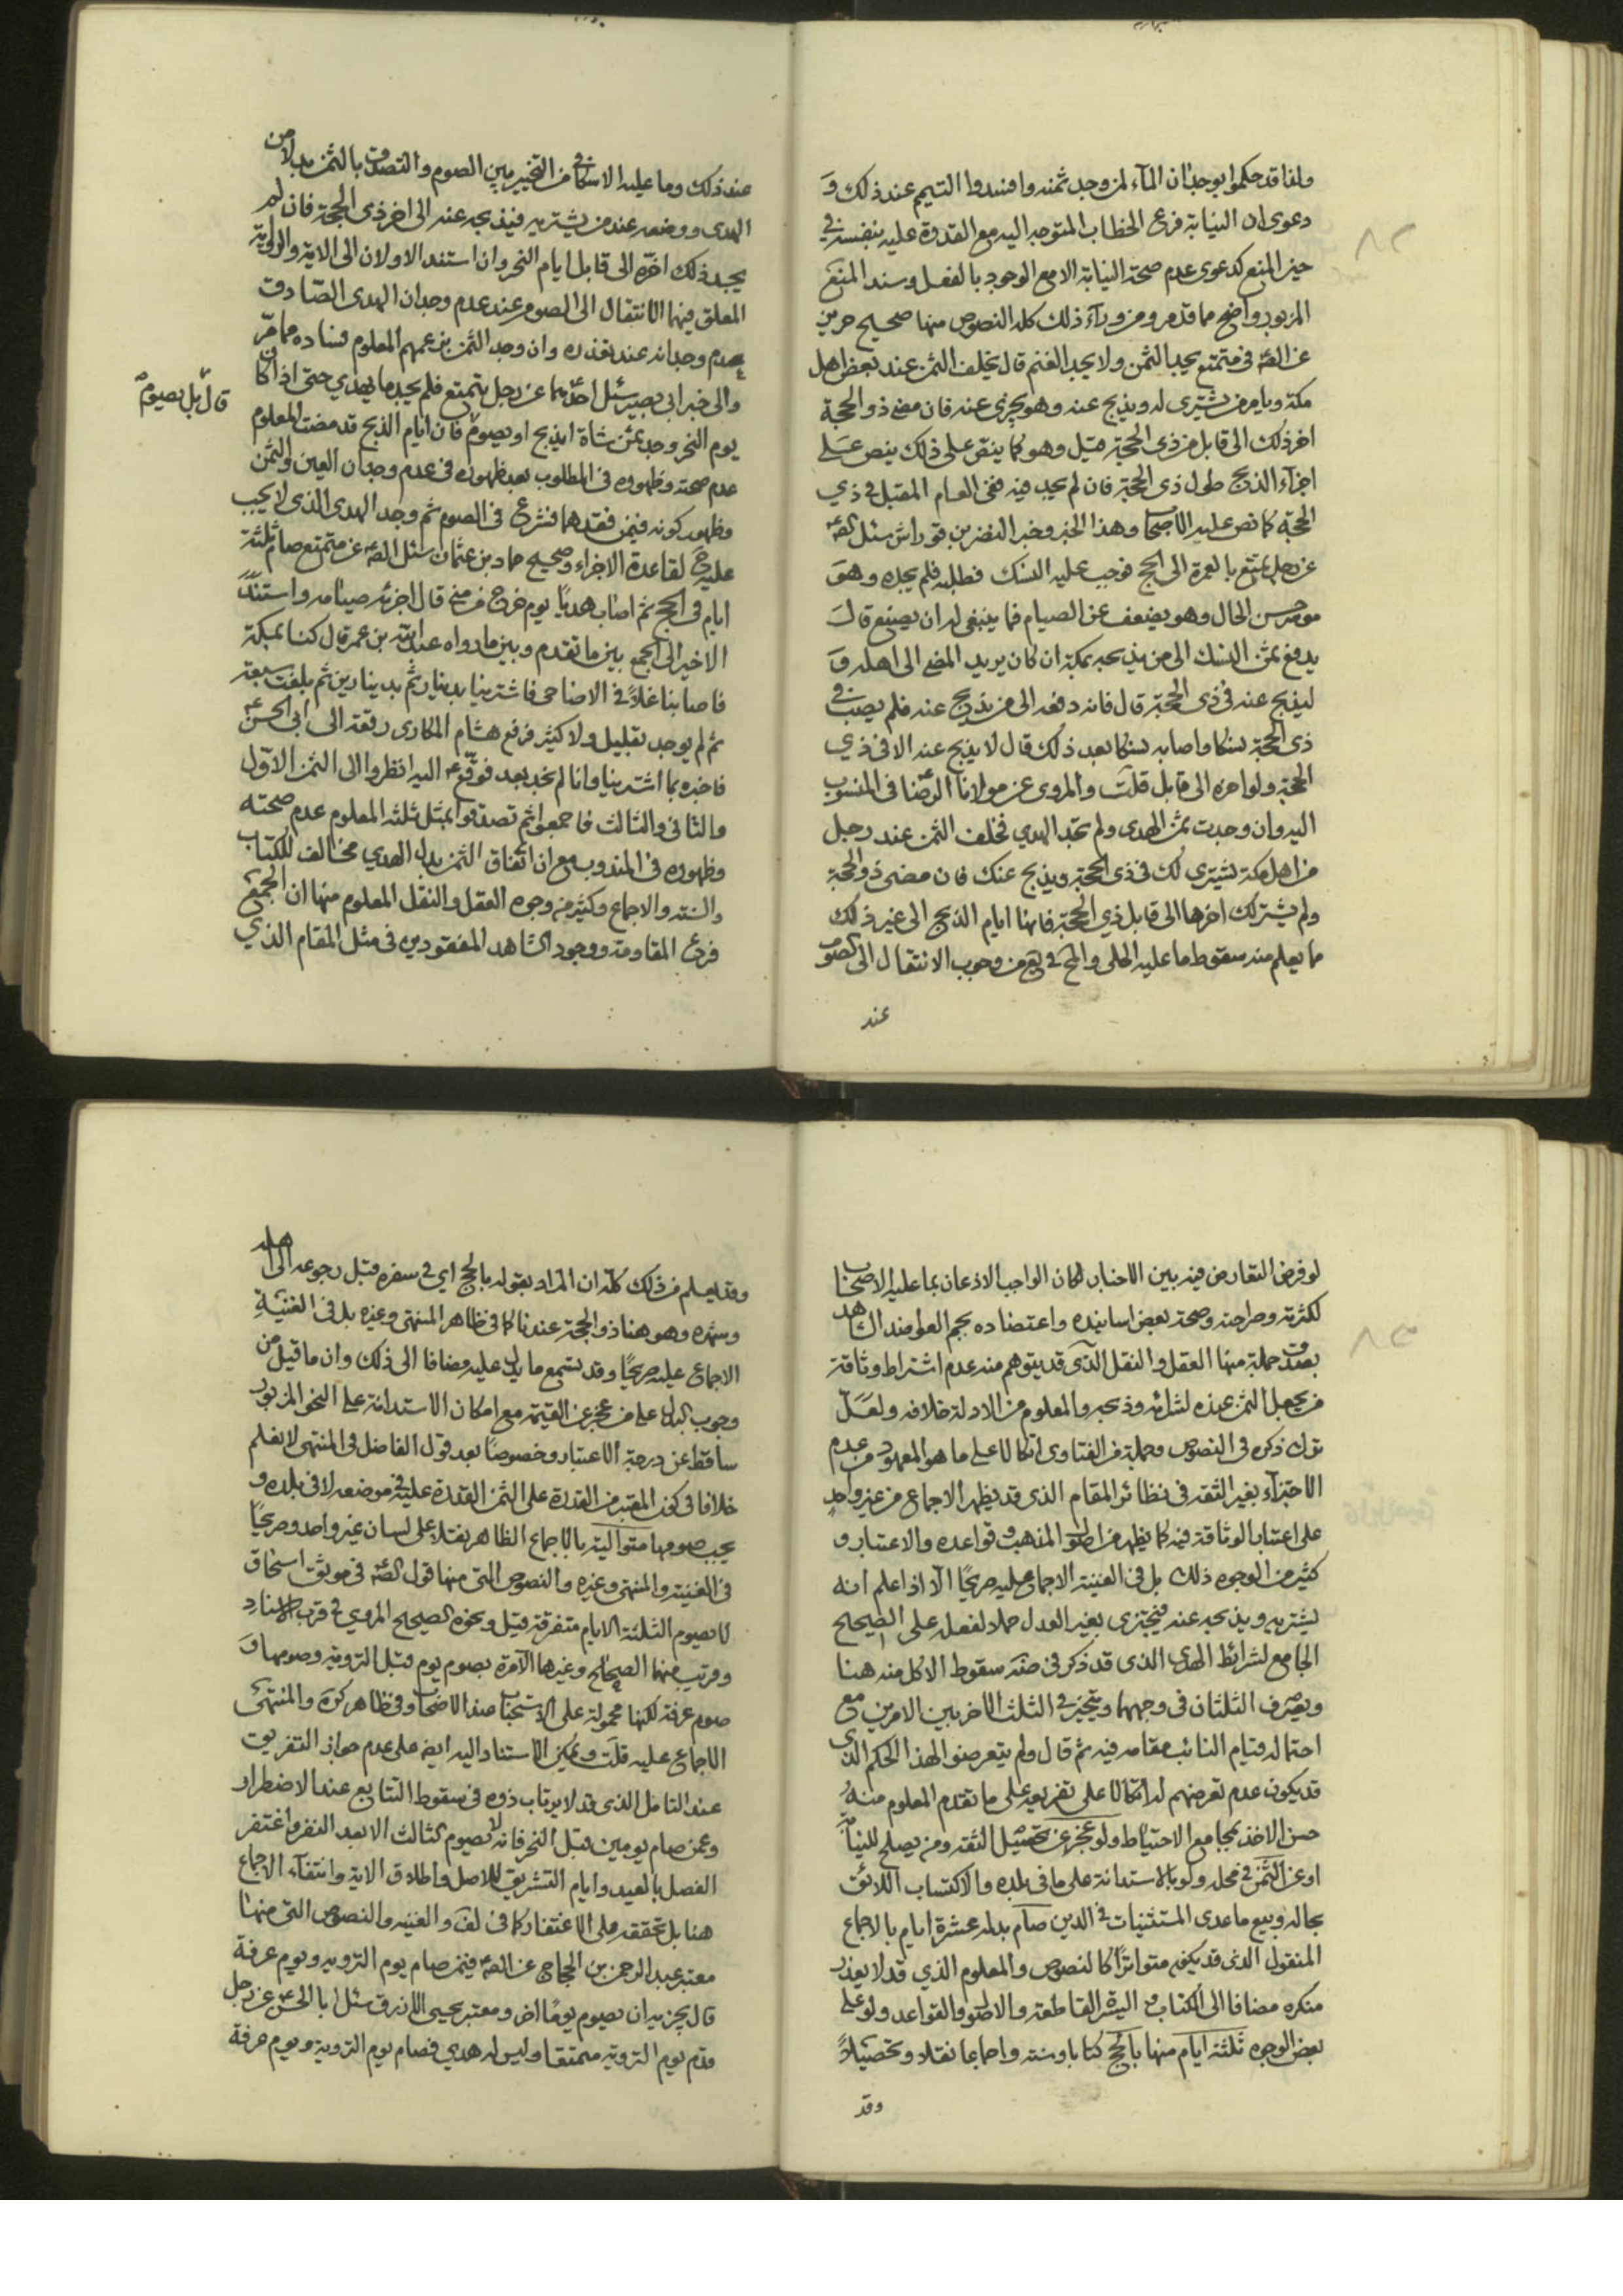 ولذا قد حكموا بوجدان المآء لمن وجد ثمنه وافسدوا التيمم عند ذلك وَ
دعوى ان النيابة فرع الخطاب المتوجه اليه مع القدرة عليه بنفسه في
حيز المنع كدعوى عدم صحة النيابة الا مع الوجود بالفعل وسند المنع
المزبور واضح مما قدمر ومن ورآء ذلك كله النصوص منها صحيح حريز
عن الصّه في متمتع يجد الثمن ولا يجد الغنم قال يخلف الثمن عند بعض اهل
مكة ويامر من يشترى له ويذبح عنه وهو يجزى عنه فان مضى ذو الحجة
اخر ذلك الى قابل من ذى الحجة قيل وهو كما ينص على ذلك ينص عَلى
اجزآء الذبح طول ذى الحجة فان لم يجد فيه ففى العام المقبل في ذي
الحجة كما نص عليه الأصحا وهذا الخبر وخبر النضر بن قرواش سئل الصّه
عن رجل تمتع بالعمرة الى الحج فوجب عليه النسك فطلبه فلم يجده وهوَ
موسر حسن الحال وهو يضعف عن الصيام فما ينبغى له ان يصنع قالَ
يدفع ثمن النسك الى من يذبحه بمكة ان كان يريد المضى الى اهله وَ
ليذبح عنه فى ذى الحجة قال فانه دفعه الى من يذبح عنه فلم يصب في
ذى الحجة نسكا واصابه نسكا بعد ذلك قال لا يذبح عنه الا فى ذي
الحجة ولو اخره الى قابل قلتَ والمروى عن مولانا الرضا فى المنسوب
اليه وان وجدت ثمن الهدى ولم تجد الهدي فخلف الثمن عند رجل
من اهل مكة يشترى لك فى ذى الحجة ويذبح عنك فان مضى ذو الحجة
ولم يشتر لك اخرها الى قابل ذي الحجة فانها ايام الذبح الى غير ذلك
مما يعلم منه سقوط ما عليه الحلى والمحَ فى يع من وجوب الانتقال الى الصوم
عند
عند ذلك وما عليه الاسكافى من التخيير بين الصوم والتصدق بالثمن بدلا من
الهدى ووضعه عند من يشتريه فيذبحه عنه الى اخر ذى الحجة فان لم
يجد ذلك اخّره الى قابل ايام النحر وان استند الاولان الى الاية والرواية
المعلق فيهما الانتقال الى الصوم عند عدم وجدان الهدى الصّادق
بعدم وجدانه عند تعذره وان وجد الثمن بزعمهم المعلوم فساده مما مّر
والى خبر ابى بصير سئل احدهما عن رجل يتمتع فلم يجد ما يهدي حتى اذا كان
يوم النحر وجد ثمن شاة ايذبح او يصوم فان ايام الذبح قد مضت المعلوم
قال بل يصوم
عدم صحته وظهوره فى المطلوب بعد ظهوره فى عدم وجدان العين والثمن
وظهور كونه فيمن فقدهما فشرع فى الصوم ثم وجد الهدى الذى لا يجب
عليه حَ لقاعدة الاجزاء وصحيح حماد بن عثمان سئل الصّه عن متمتع صام ثلثة
ايام فى الحج ثم اصاب هديًا يوم خرج من منى قال اجزئه صيامه واستندَ
الاخير الى الجمع بين ما تقدم وبين ما رواه عبد الله بن عمر قال كنا بمكة
فاصابنا غلاءً فى الاضاحى فاشترينا بدينار ثم بدينارين ثم بلغت سبعة
ثم لم يوجد بقليل ولا كثير فرفع هشام المكارى رقعة الى ابى الحسن ع
فاخبره بما اشترينا وانا لم نجد بعد فوقّع ع اليه انظروا الى الثمن الاوّل
والثانى والثالث فاجمعوا ثم تصدقوا بمثل ثلثه المعلوم عدم صحته
وظهوره فى المندوب مع ان اتفاق الثمن بدل الهدي مخالف للكتاب
والسنه والاجماع وكثير من وجوه العقل والنقل المعلوم منها ان الجمع
فرع المقاومة ووجود الشاهد المفقودين فى مثل المقام الذي
لو فرض التعارض فيه بين الاخبار لكان الواجب الاذعان بما عليه الاصحاب
لكثرته وصراحته وصحة بعض اسانيده واعتضاده بجم الغفل ومنه الشاهد
بصدق جملة منها العقل والنقل الذى قد يتوهم منه عدم اشتراط وثاقة
من يجعل الثمن عنده لشرائه وذبحه والمعلوم من الادلة خلافه ولعَلّ
ترك ذكره فى النصوص وجملة من الفتاوى اتكالا على ما هو المعهود من عدم
الاجتزآء بغير الثقه فى نظائر المقام الذى قد يظهر الاجماع من غير واحدٍ
على اعتبار الوثاقة فيه كما يظهر من اصول المذهب وقواعده والاعتبار و
كثير من الوجوه ذلك بل فى الغنية الاجماع عليه صريحًا الّا اذا علم انه
يشتريه ويذبحه عنه فيجتزى بغير العدل حملا لفعله على الصحيح
الجامع لشرائط الهدى الذى قد ذكر فى ضّه سقوط الاكل منه هنا
ويصرف الثلثان فى وجههما ويتخير فى الثلث الاخر بين الامرين مع
احتماله قيام النائب مقامه فيه ثم قال ولم يتعرضوا لهذا الحكم الذى
قد يكون عدم تعرضهم له اتكالا على تفريعه على ما تقدم المعلوم منهُ
حسن الاخذ بمجامع الاحتياط ولو عجز عن تحصيل الثقه ومن يصلح للنيابة
او عن الثّمن فى محله ولو بالاستدانة على ما فى بلده والاكتساب اللائق
بحاله وبيع ما عدى المستثنيات فى الدين صام بدله عشرة ايام بالاجماع
المنقول الذى قد يكون متواترًا كالنصوص والمعلوم الذي قد لا يعذر
منكره مضافا الى الكتاب و السيرة القاطعة والاصول والقواعد ولو على
بعض الوجوه ثلثة ايام منها بالحج كتابا وسنة واجماعا نقلا وتحصيلاً
وقد
وقد يعلم من ذلك كلّه ان المراد بقوله بالحج اي فى سفره قبل رجوعه الى اهله
وشهره وهو هنا ذو الحجة عندنا كما فى ظاهر المنتهى وغيره بل فى الغنيةِ
الاجماع عليه صريحًا وقد يسمع ما يدل عليه مضافا الى ذلك وان ما قيل من
وجوب البدل على من عجز عن القيمة مع امكان الاستدانة على النحو المزبور
ساقط عن درجة الاعتبار وخصوصًا بعد قول الفاضل فى المنتهى لا نعلم
خلافا فى كون المعتبر من القدرة على الثمن القدرة عليه فى موضعه لا فى بلده و
يجب صومها متوالية بالاجماع الظاهر نقلا على لسان غير واحد وصريحًا
فى الغنية والمنتهى وغيره والنصوص التى منها قول الصّه فى موثق اسحاق
لا يصوم الثلثة الايام متفرقة قيل ونحوه الصحيح المروي فى قرب الاسناد
وقريب منهما الصحاح وغيرها الآمرة بصوم يوم قبل التروية وصومها وَ
صوم عرفة لكنها محمولة على الاستحباب عند الاصحاب وفى ظاهر كره والمنتهى
الاجماع عليه قلتَ ويمكن الاستناد اليه ايضً على عدم جواز التفريق
عند التامل الذى قد لا يرتاب ذوه فى سقوط التتابع عند الاضطرار
وعمن صام يومين قبل النحر فانه لا يصوم الثالث الا بعد النفر واغتفر
الفصل بالعيد وايام التشريق للاصل واطلاق الاية وانتفآء الاجماع
هنا بل تحققه على الاغتفار كما فى لف والغنيه والنصوص التى منها
معتبر عبد الرحمن بن الحجاج عن الصّه فيمن صام يوم الترويه ويوم عرفة
قال يجزيه ان يصوم يومًا اخر ومعتبر يحيى الازرق سئل ابا الحسن ع عن رجل
قدم يوم التروية متمتعا وليس له هدي فصام يوم التروية ويوم عرفة